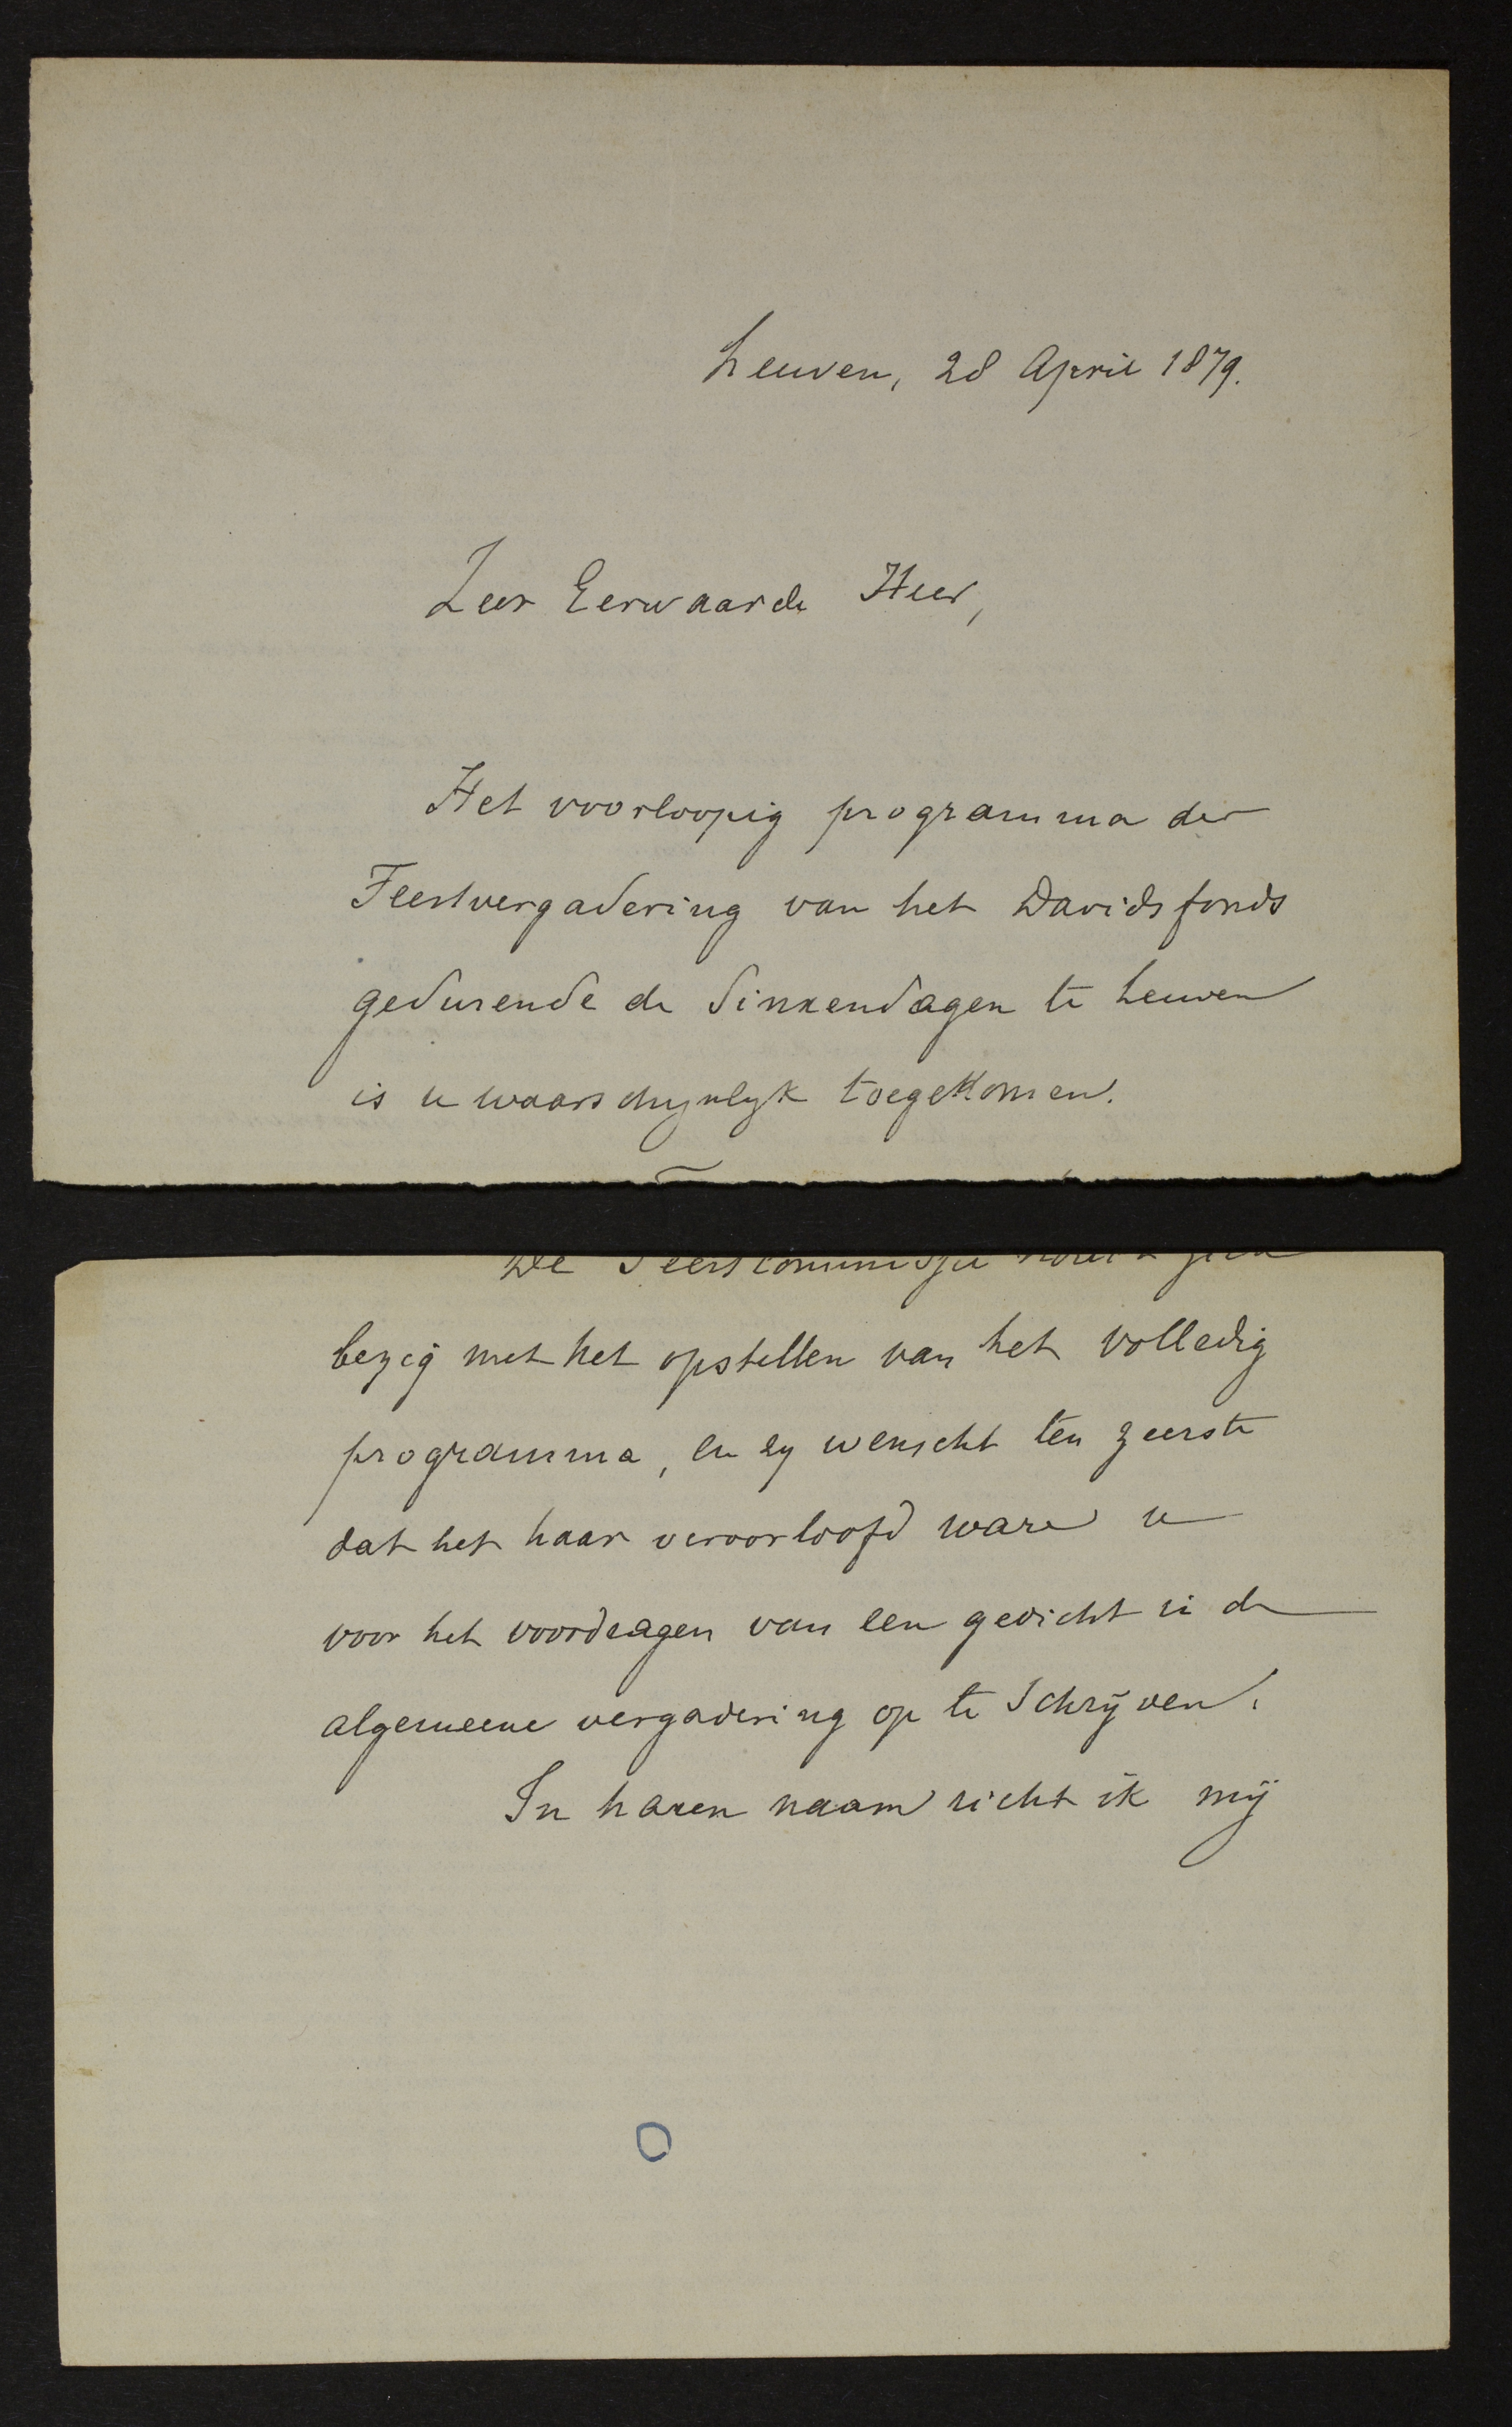 Leuven, 28 April 1879.
Zeer Eerwaarde Heer,
Het voorloopig programma der
Feestvergadering van het Davidsfonds
gedurende de Sinxendagen te Leuven
is u waarschynlyk toegekomen.
De Feestcommissie houdt zich
bezig met het opstellen van het volledig
programma, en zy wenscht ten zeerste
dat het haar veroorloofd ware u
voor het voordragen van een gedicht in de
algemeene vergadering op te schrijven.
In haren naam richt ik mij